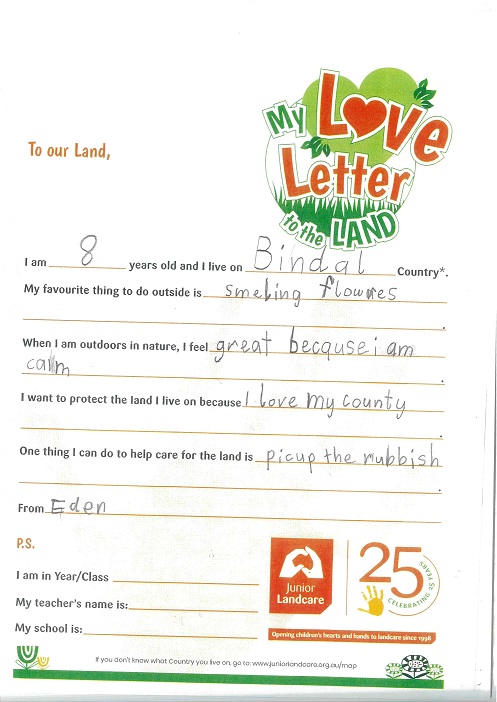 My Love
Letter
to the LAND
To our Land,
I am 8 years old and I live on Bindal Country*.
My favourite thing to do outside is smeling flowres
.
When I am outdoors in nature, I feel great becquse i am
calm.
I want to protect the land I live on because I love my county
.
One thing I can do to help care for the land is picup the rubbish
.
From Eden
P.S.
I am in Year/Class
My teacher's name is:
My school is:
Junior
Landcare
25
CELEBRATING 25 YEARS
Opening children's hearts and hands to landcare since 1998
If you don't know what Country you live on, go to: www.juniorlandcare.org.au/map